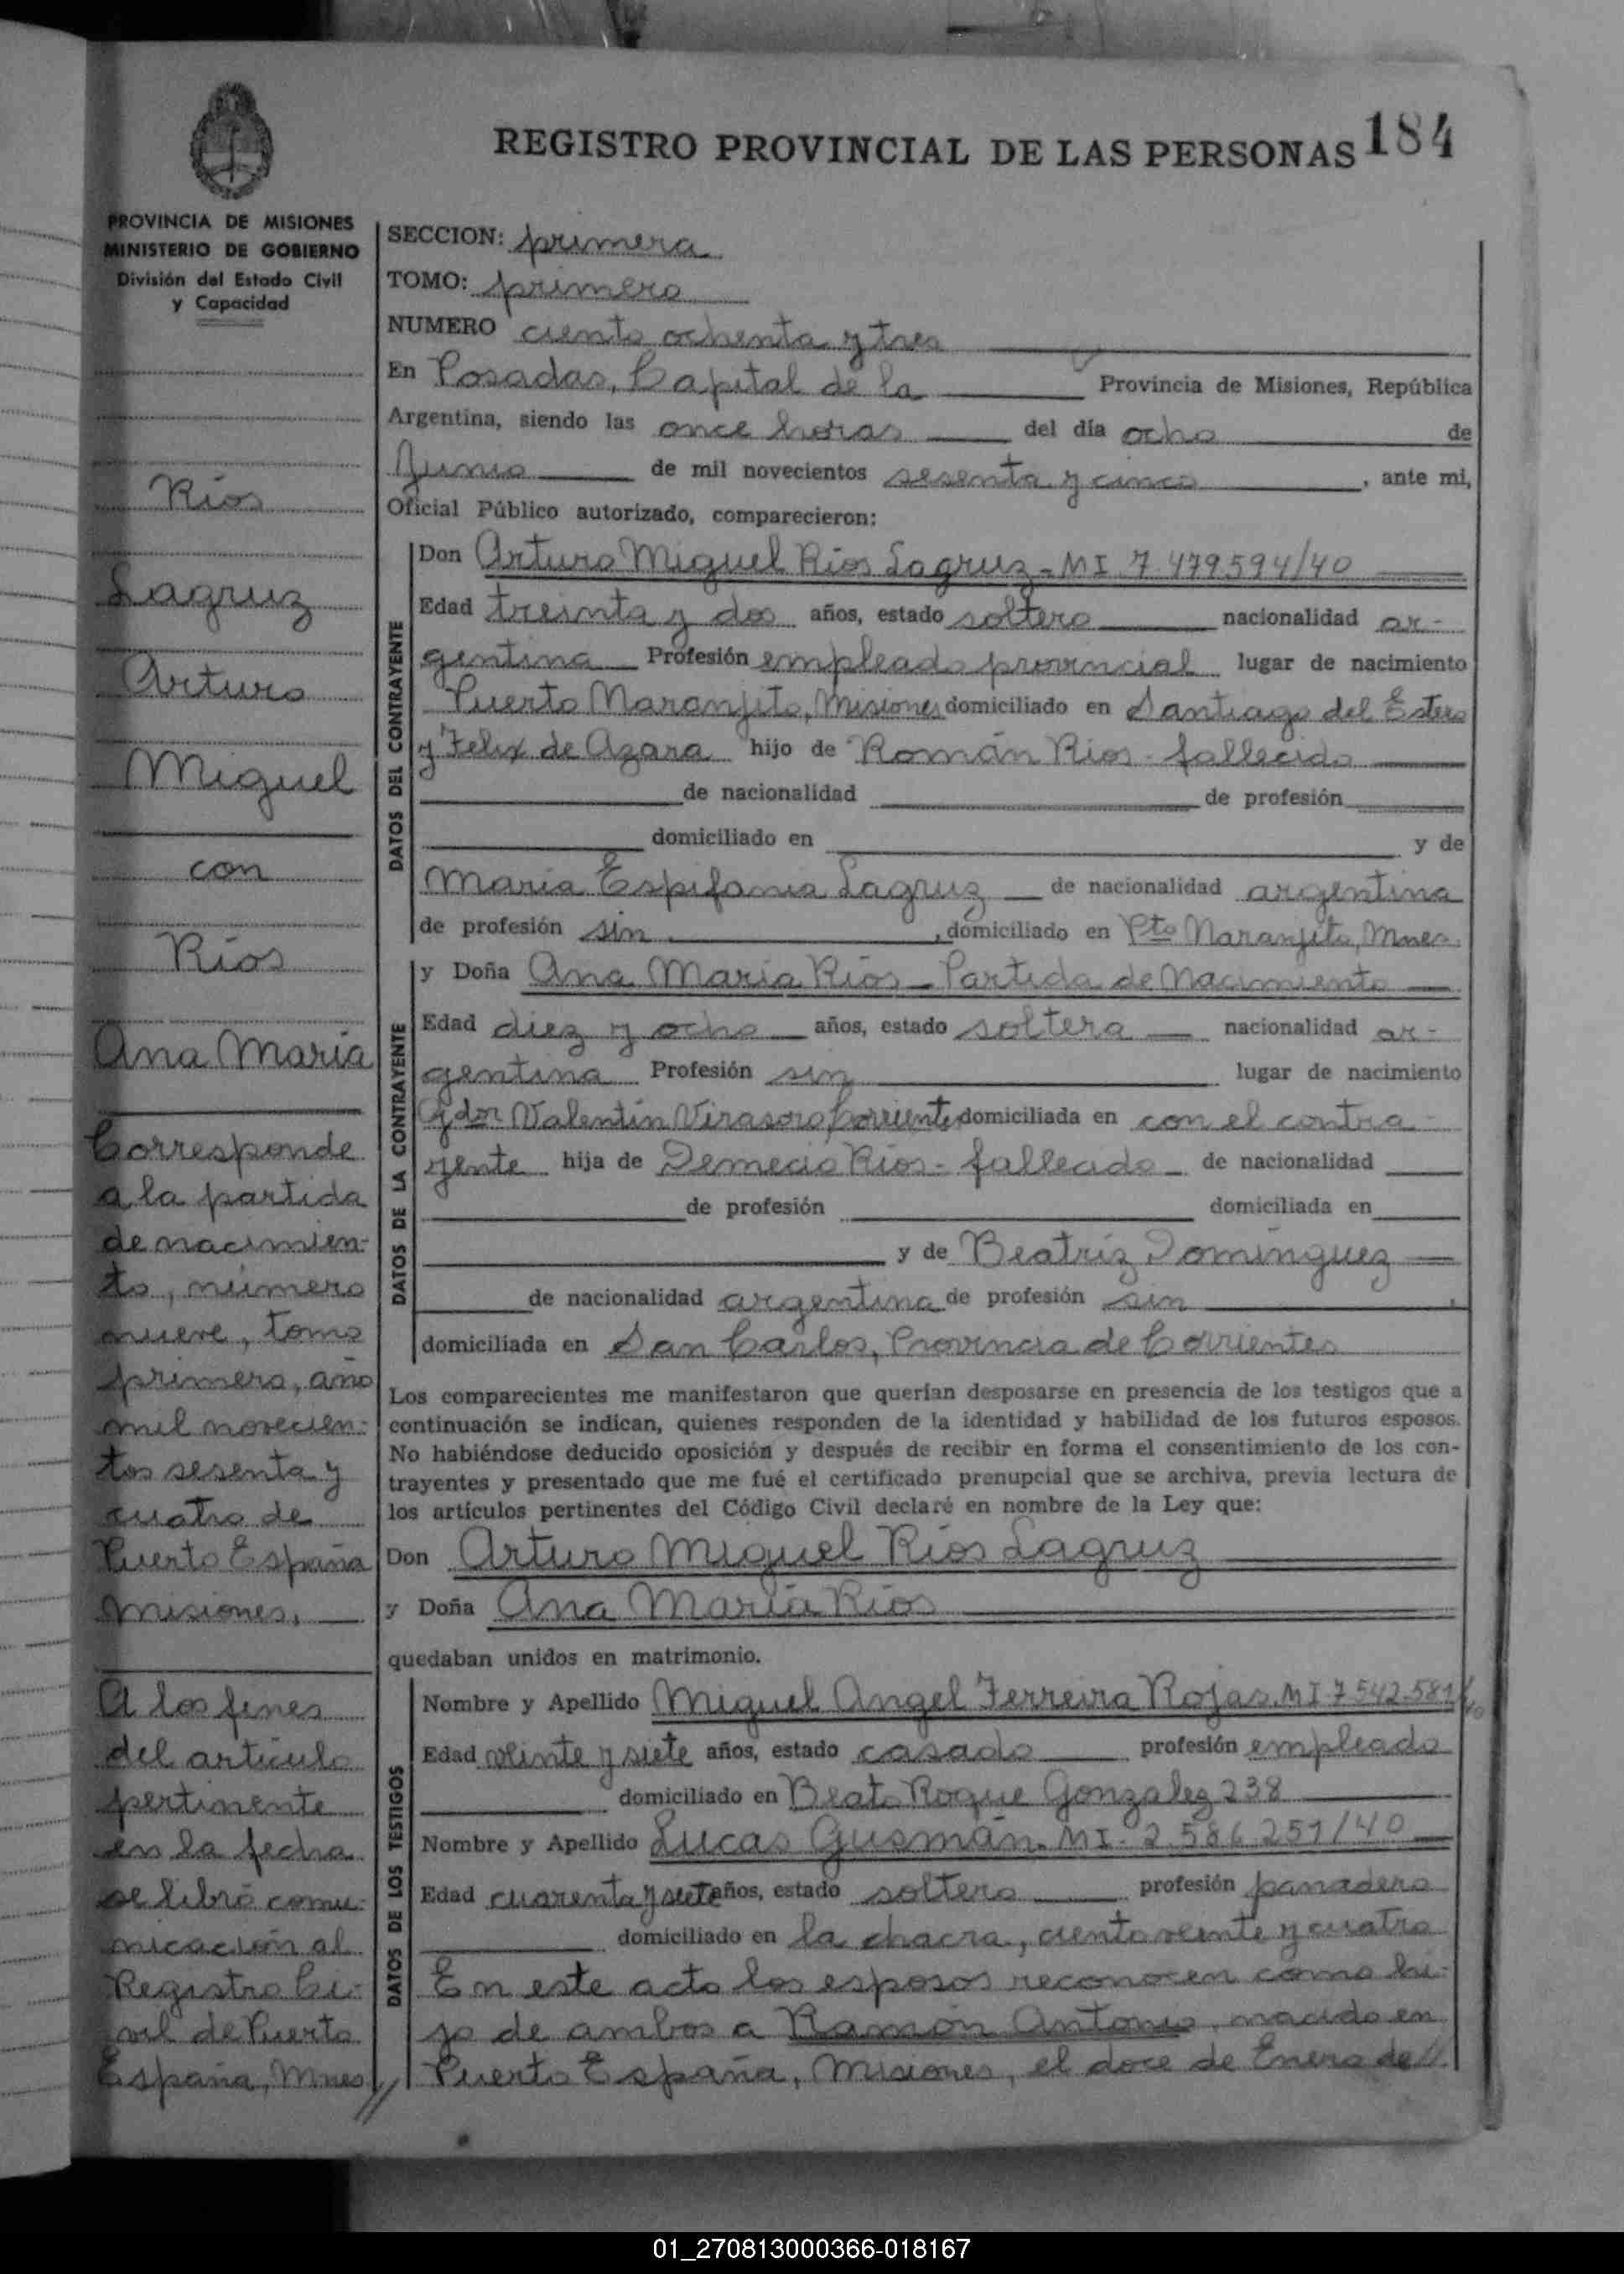 REGISTRO PROVINCIAL DE LAS PERSONAS 184
PROVINCIA DE MISIONES
MINISTERIO DE GOBIERNO
División del Estado Civil
y Capacidad
Ríos
Lagruz
Arturo
Miguel
con
Ríos
Ana María
Corresponde
a la partida
de nacimien-
to, número
nueve, tomo
primero, año
mil novecien-
tos sesenta y
cuatro de
Puerto España
Misiones.
A los fines
del artículo
pertinente
en la fecha
se libró comu-
nicación al
Registro Ci-
vil de Puerto
España, Mnes //
SECCION: primera
TOMO: primero
NUMERO ciento ochenta y tres
En Posadas, Capital de la Provincia de Misiones, República
Argentina, siendo las once horas del día ocho de
Junio de mil novecientos sesenta y cinco, ante mi,
Oficial Público autorizado, comparecieron:
DATOS DEL CONTRAYENTE
Don Arturo Miguel Ríos Lagruz - MI 7.479594/40
Edad treinta y dos años, estado soltero nacionalidad ar-
gentina Profesión empleado provincial lugar de nacimiento
Puerto Naranjito, Misiones domiciliado en Santiago del Estero
y Felix de Azara hijo de Román Ríos - fallecido
de nacionalidad de profesión
domiciliado en y de
María Espifania Lagruz de nacionalidad argentina
de profesión sin, domiciliado en Pto Naranjito, Mnes.
DATOS DE LA CONTRAYENTE
y Doña Ana María Ríos - Partida de Nacimiento
Edad diez y ocho años, estado soltera nacionalidad ar-
gentina Profesión sin lugar de nacimiento
Gdor Valentín Virasoro Corrientes domiciliada en con el contra-
yente hija de Demecio Ríos - fallecido - de nacionalidad
de profesión domiciliada en
y de Beatríz Domínguez
de nacionalidad argentina de profesión sin,
domiciliada en San Carlos, Provincia de Corrientes
Los comparecientes me manifestaron que querían desposarse en presencia de los testigos que a
continuación se indican, quienes responden de la identidad y habilidad de los futuros esposos.
No habiéndose deducido oposición y después de recibir en forma el consentimiento de los con-
trayentes y presentado que me fué el certificado prenupcial que se archiva, previa lectura de
los artículos pertinentes del Código Civil declaré en nombre de la Ley que:
Don Arturo Miguel Ríos Lagruz
y Doña Ana María Ríos
quedaban unidos en matrimonio.
DATOS DE LOS TESTIGOS
Nombre y Apellido Miguel Angel Ferreira Rojas. MI 7542-581/40
Edad veinte y siete años, estado casado profesión empleado
domiciliado en Beato Roque Gonzalez 238
Nombre y Apellido Lucas Gusmán. MI - 2.586 251/40
Edad cuarenta y siete años, estado soltero profesión panadero
domiciliado en la chacra, ciento veinte y cuatro
En este acto los esposos reconocen como hi-
jo de ambos a Ramón Antonio, nacido en
Puerto España, Misiones, el doce de Enero de //
01_270813000366-018167